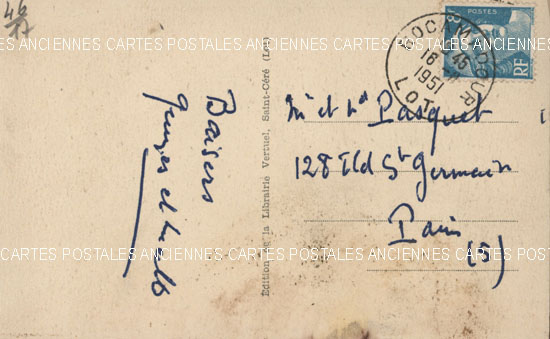 46
CARTES POSTALES ANCIENNES CARTES POSTALES ANCIENNES CARTES POSTALES
Baisers
et
Édition de la Librairie Vertuel, Saint-Céré (Lot)
POSTES
RF
ROCAMADOUR
16
1951
LOT
Mr et Md Pasquet
128 Bld St Germain
Paris
(5)
CARTES POSTALES ANCIENNES CARTES POSTALES ANCIENNES CARTES POSTALES